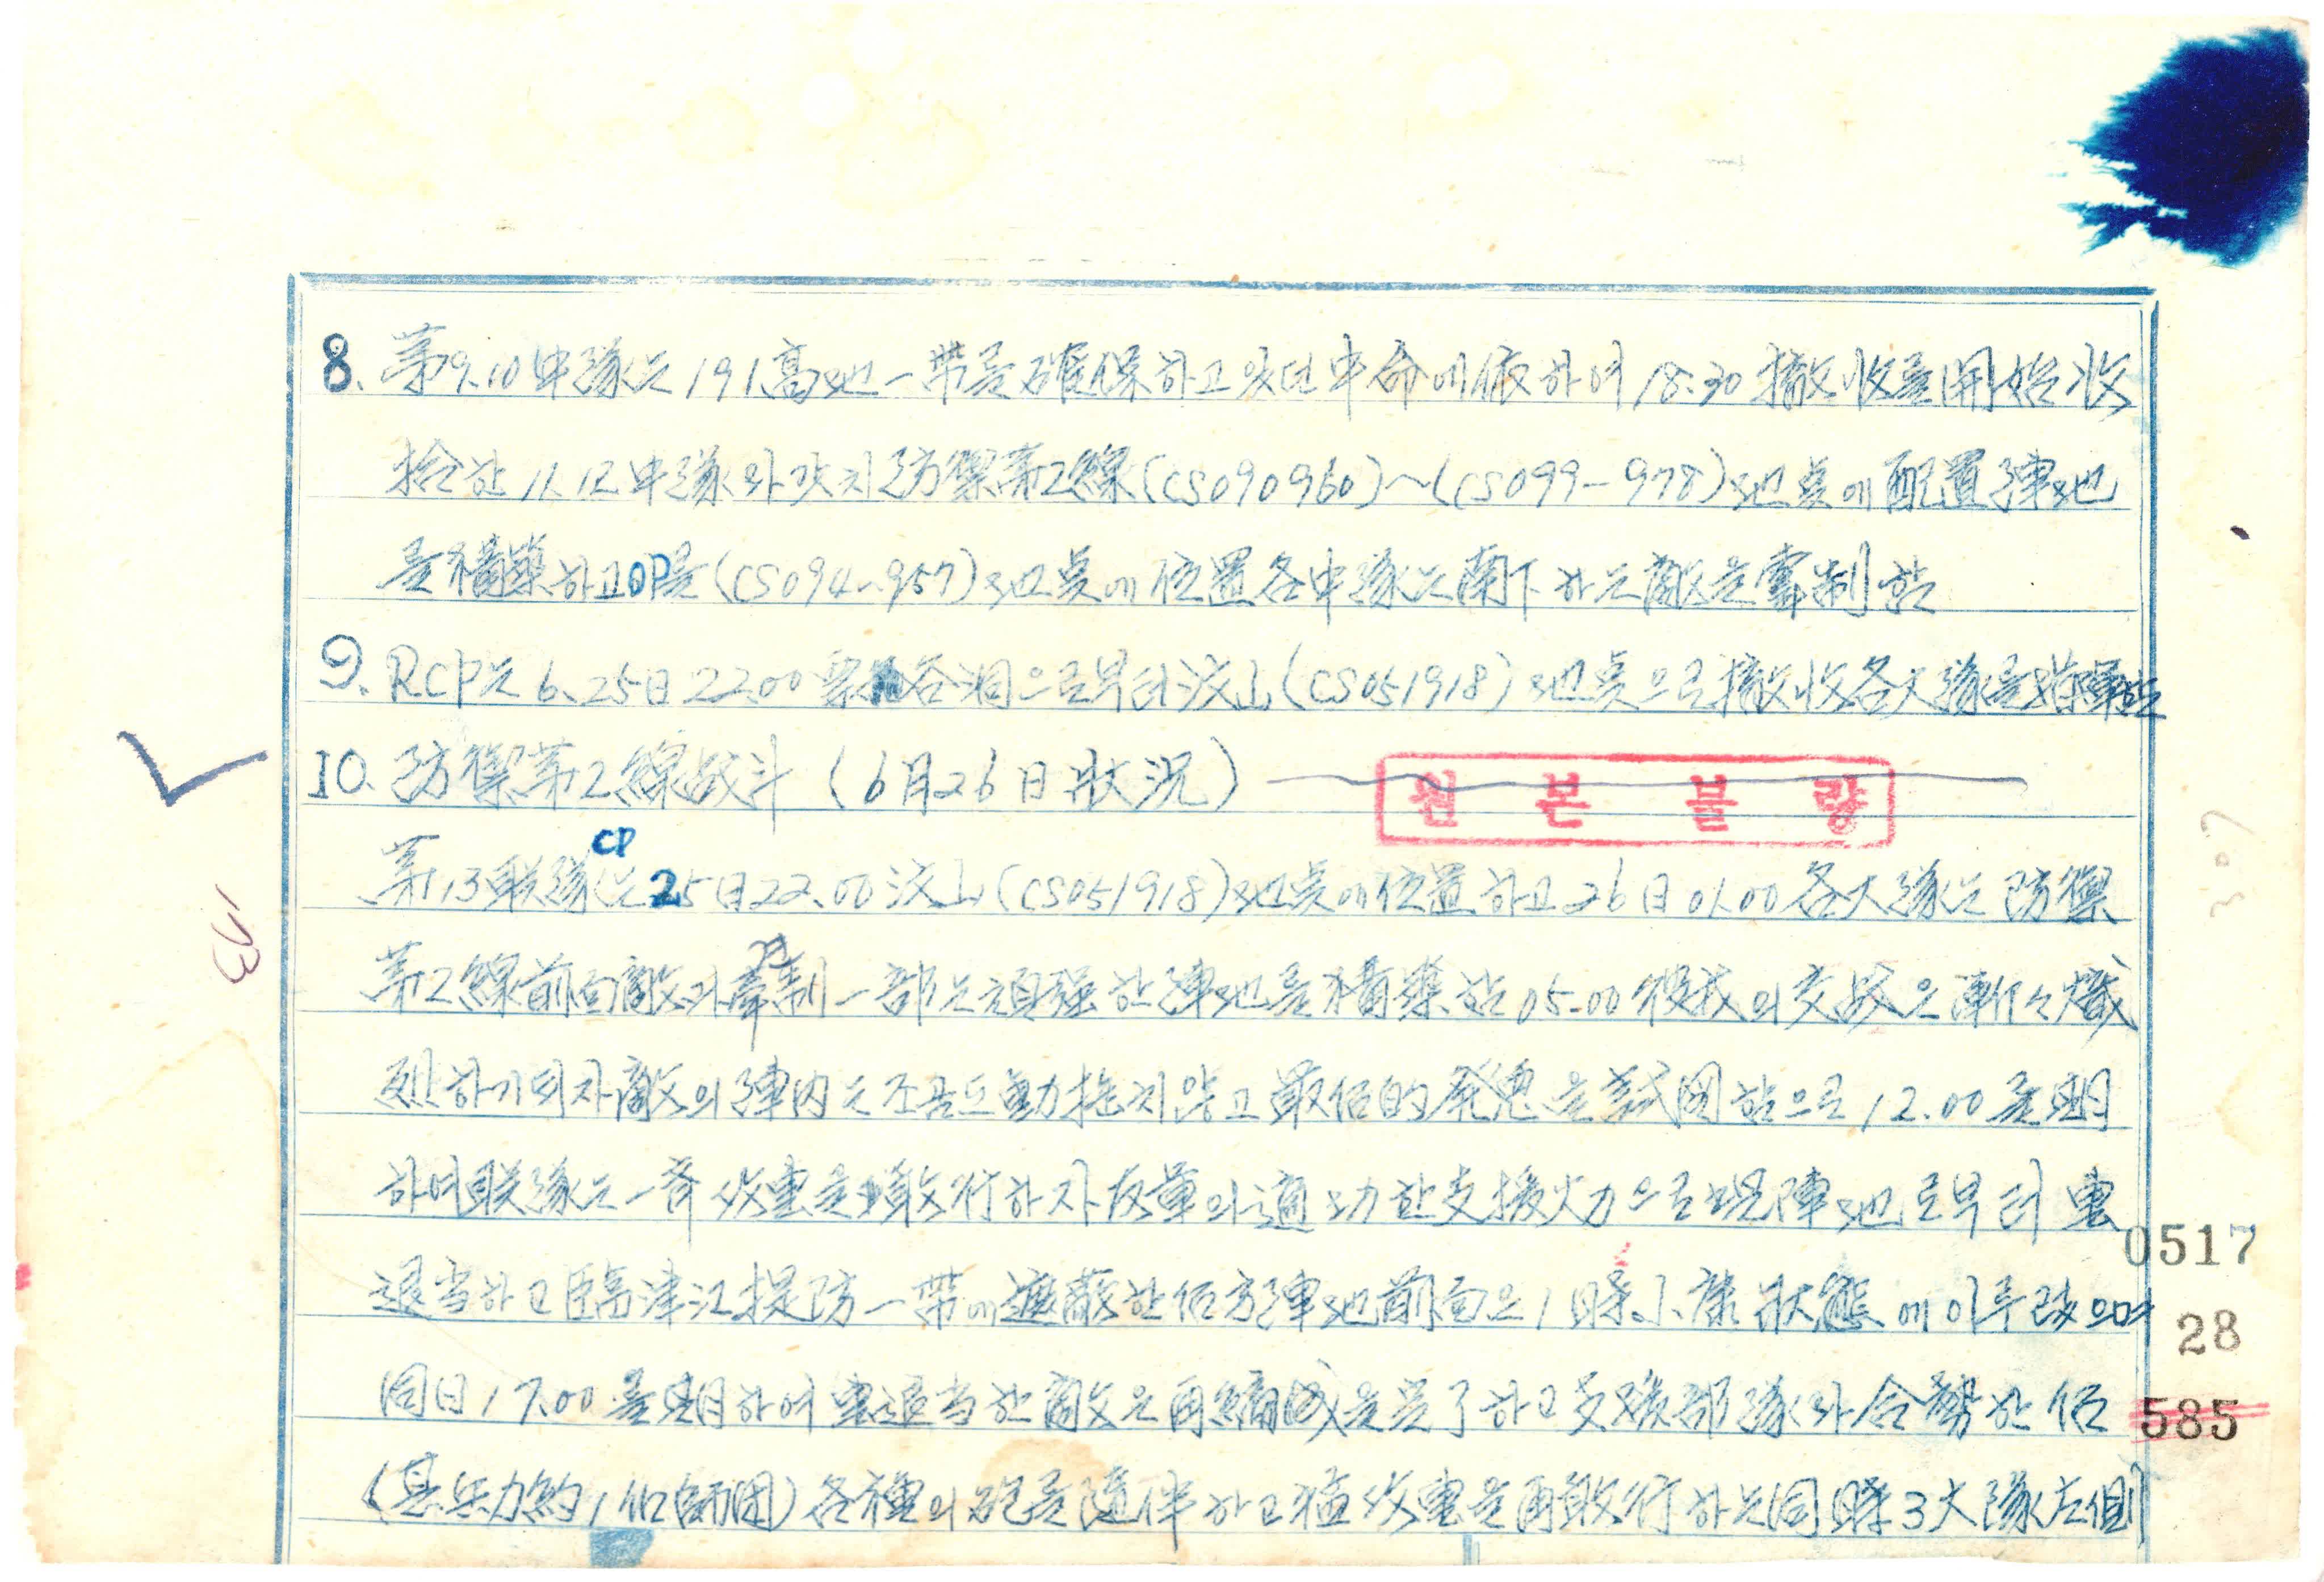 8. 第9.10中隊은 191高地一帶를 確保하고 있던中 命에 依하여 18.30 撤收를 開始 收
拾한 11.12中隊와 같치 防禦第2線(CS090960)~(CS099-978)地点에 配置 陣地
를 構築하고 OP를 (CS094-957)地点에 位置 各中隊는 南下하는 敵을 牽制함
9. RCP는 6.25日 22.00 谷洞으로부터 汶山(CS051918)地点으로 撤收 各大隊를 指揮함
10. 防禦第2線战斗 (6月26日 狀況)
원본불량
第13联隊CP는 25日 22.00 汶山(CS051918)地点에 位置하고 26日 01.00 各大隊는 防禦
第2線 前面敵과 牽制 一部는 頑强한 陣地를 構築함 05.00 彼我의 交战은 漸々 熾
烈하기 되자 敵의 陣內는 조곰도 動搖치 않고 最后的 을 試图함으로 12.00를 期
하여 联隊는 一齊 攻擊을 敢行하자 友軍의 適切한 支援火力으로 現陣地로부터 擊
退当하고 臨津江 提防一帶에 遮蔽한 后 方陣地前面은 1時 小康狀態에 이루렀으며
同日 17.00를 期하여 擊退当한 敵은 再編成을 完了하고 支援部隊와 合勢한 后
(其兵力 約 1個師团) 各種의 砲를 隨伴하고 猛攻擊을 再敢行하는 同時 3大隊 左側
0517
28
585
307